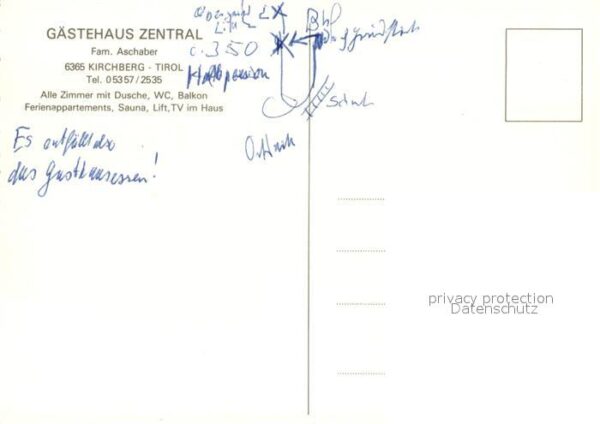 GÄSTEHAUS ZENTRAL
Fam. Aschaber
6365 KIRCHBERG - TIROL
Tel. 05357/2535
Alle Zimmer mit Dusche, WC, Balkon
Ferienappartements, Sauna, Lift,TV im Haus
c. 350
Halbpension
Bhf
Es entfällt also
das Gasthausessen!
privacy protection
Datenschutz